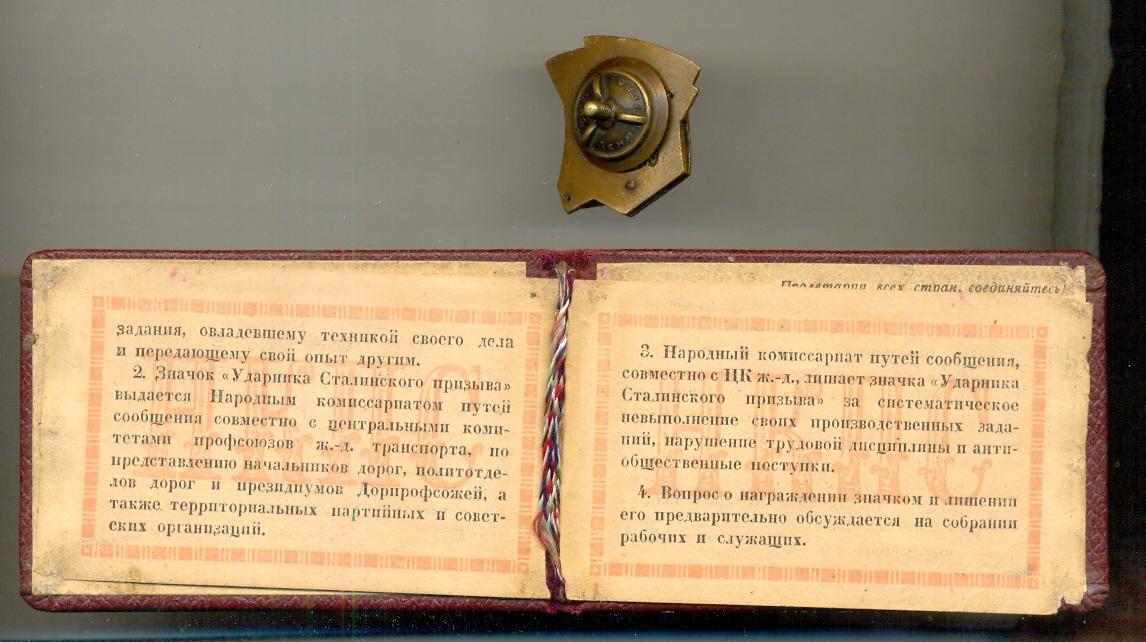 задания, овладевшему техникой своего дела
и передающему свой опыт другим.
2. Значок «Ударника Сталинского призыва»
выдается Народным комиссариатом путей
сообщения совместно с центральными коми-
тетами профсоюзов ж.-д. транспорта, по
представлению начальников дорог, политотде-
лов дорог и президиумов Дорпрофсожей, а
также территориальных партийных и совет-
ских организаций.
Пролетарии всех стран, соединяйтесь!
3. Народный комиссариат путей сообщения,
совместно с ЦК ж.-д., лишает значка «Ударника
Сталинского призыва» за систематическое
невыполнение своих производственных зада-
ний, нарушение трудовой дисциплины и анти-
общественные поступки.
4. Вопрос о награждении значком и лишении
его предварительно обсуждается на собрании
рабочих и служащих.